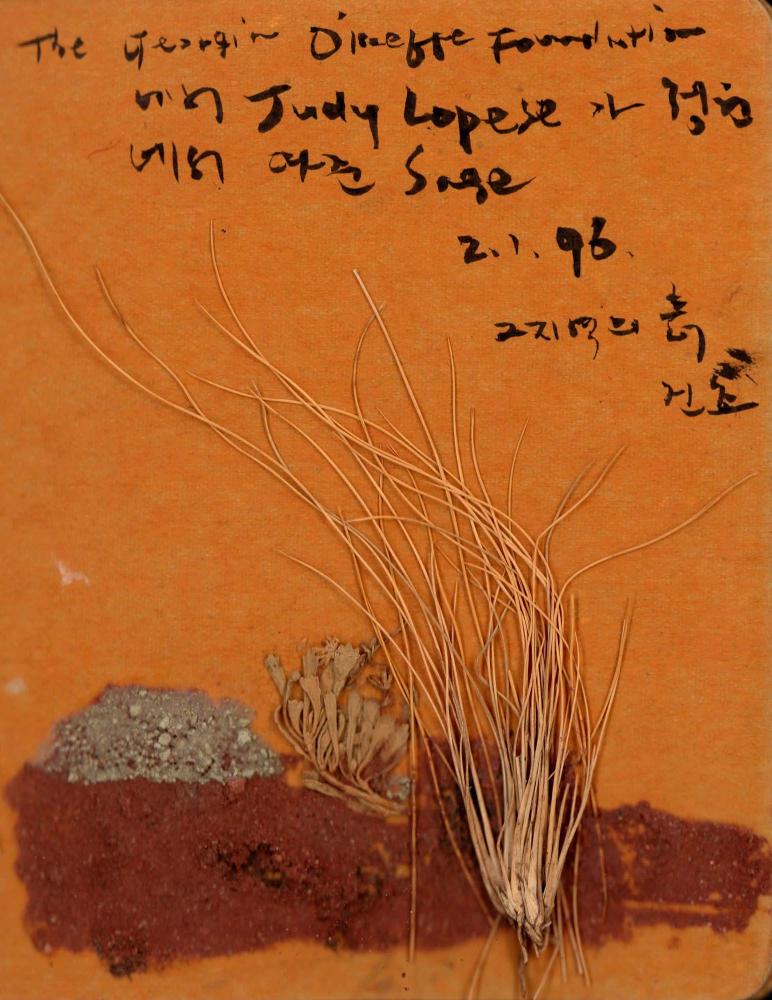 The Georgia O'keeffe Foundation
에서 Judy Lopese 가 정원
에서 따준 Sage
2.1.96.
그지역의 흙